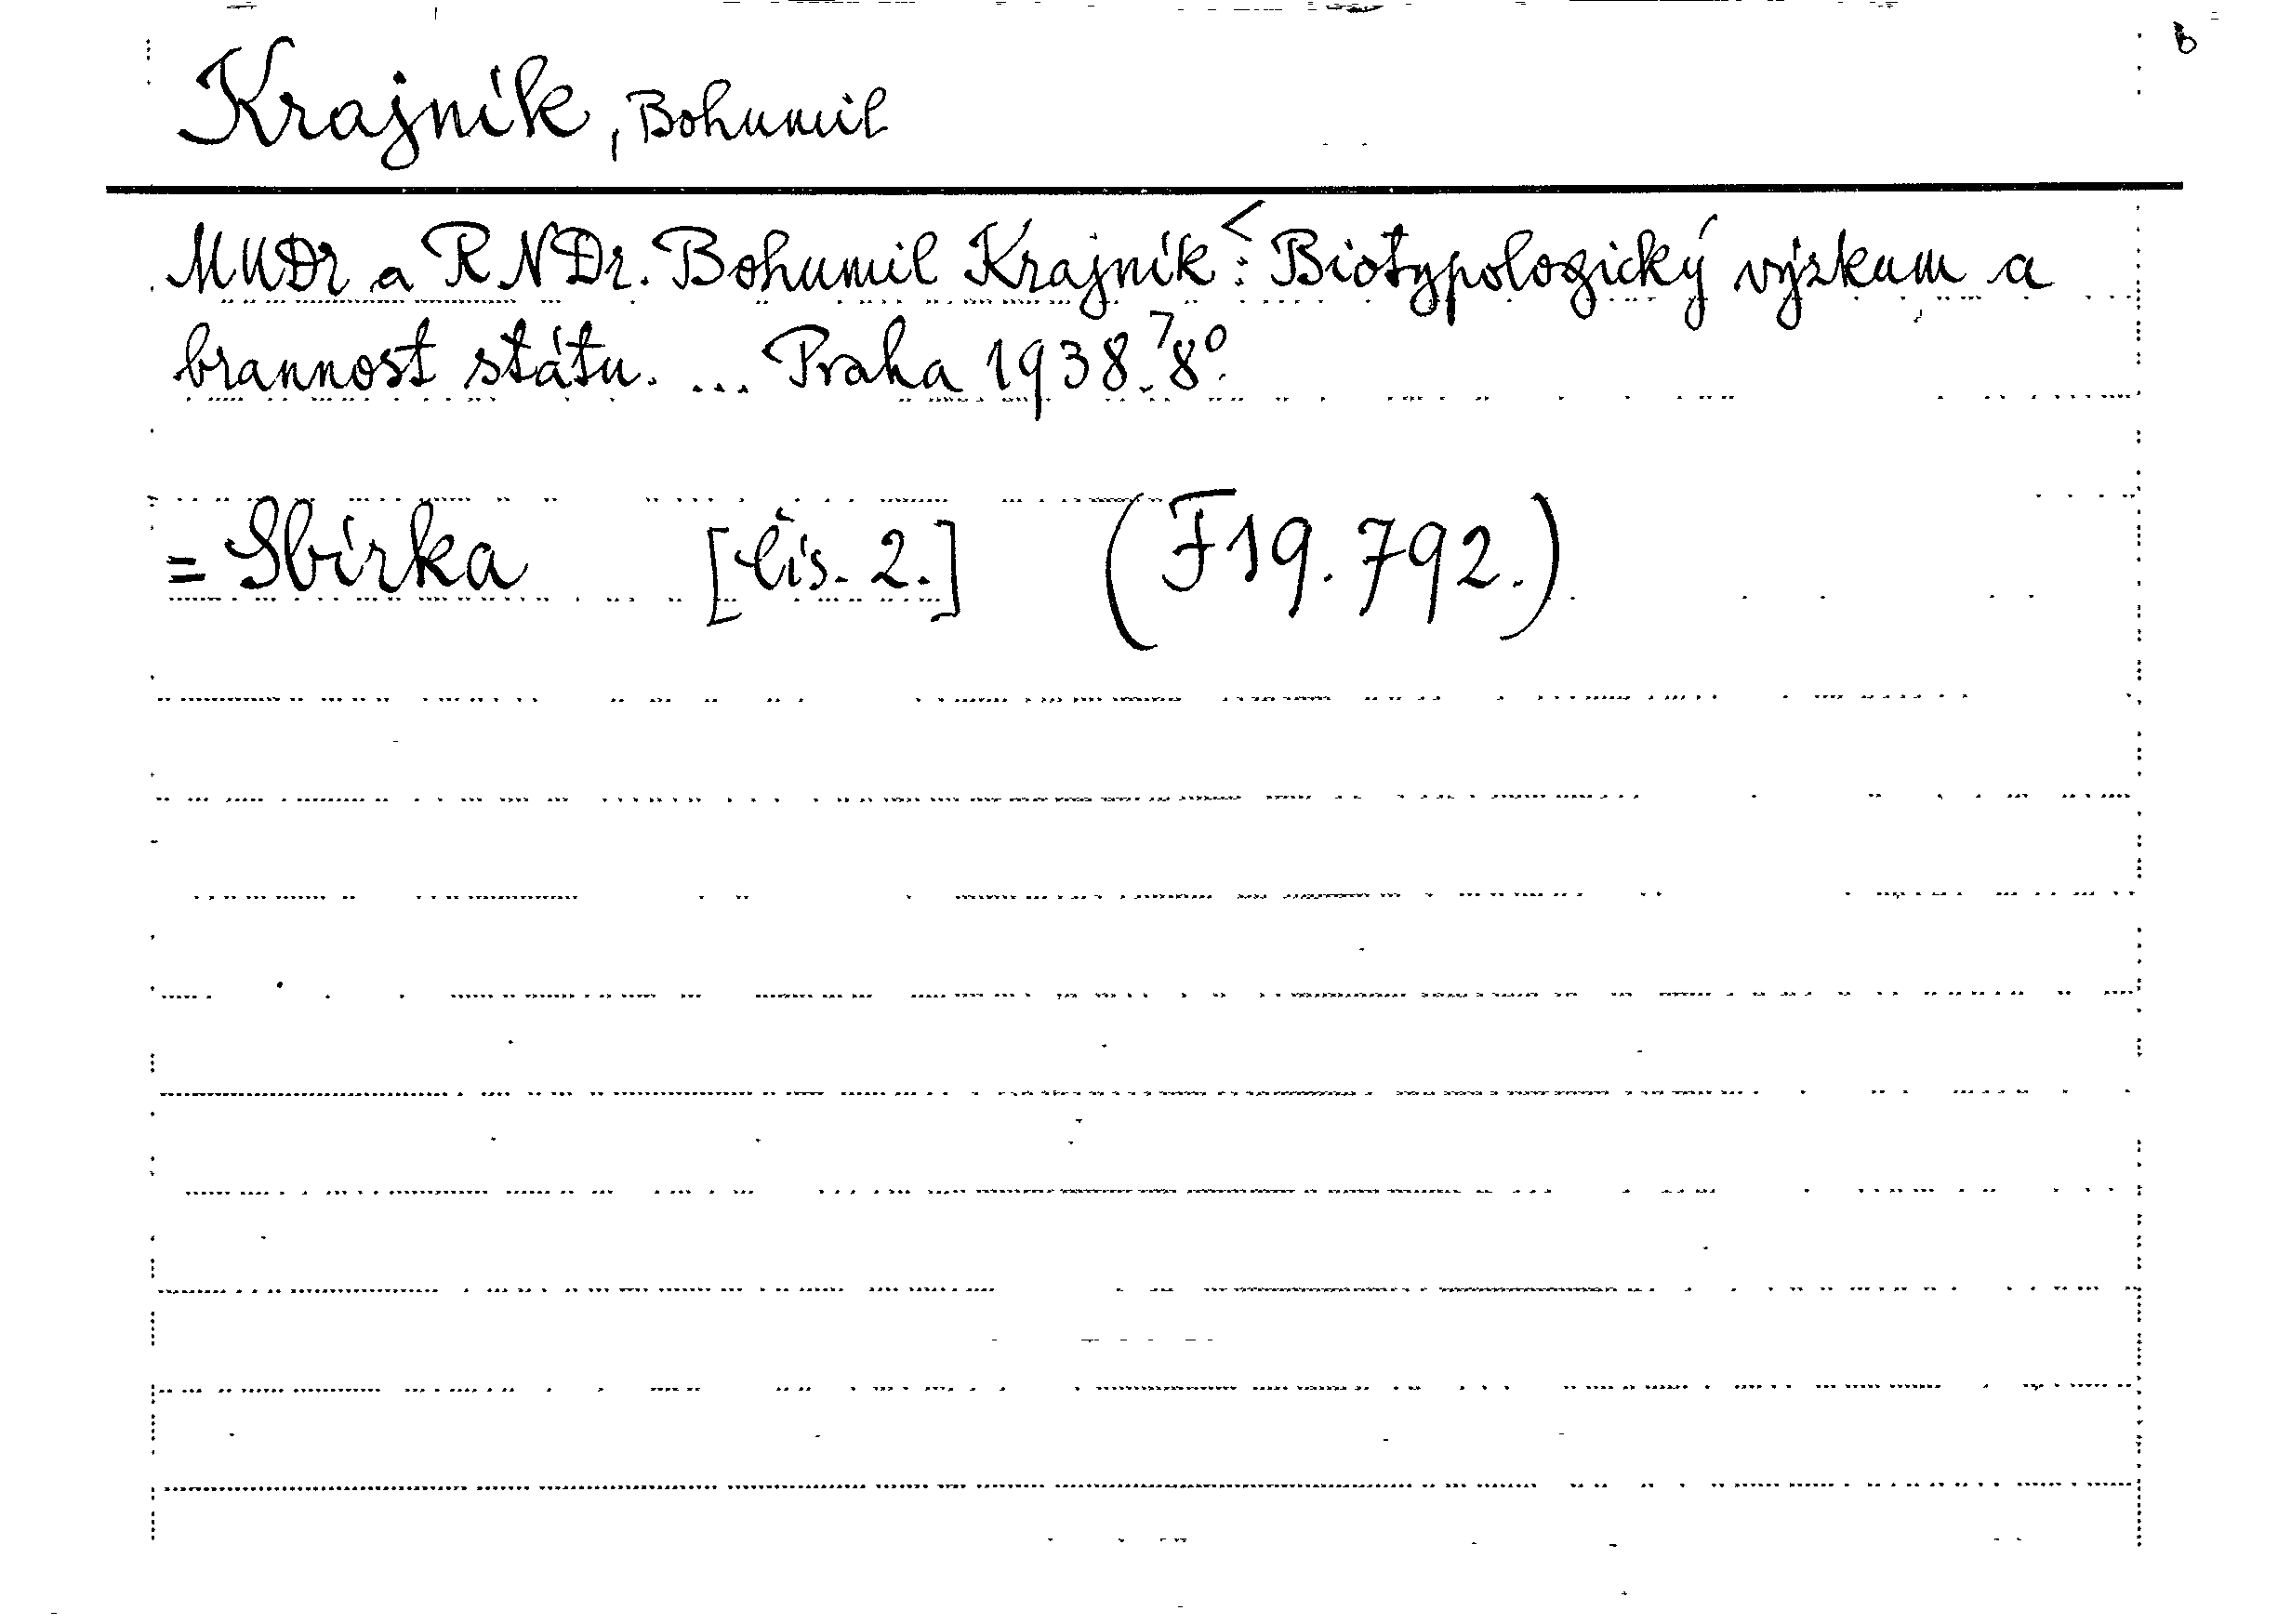 b
Krajník, Bohumil
MUDr a RNDr. Bohumil Krajník <: Biotypologický výzkum a
brannost státu. ... Praha 1938.> 8°.
= Sbírka [čís. 2.] (F 19.792.)